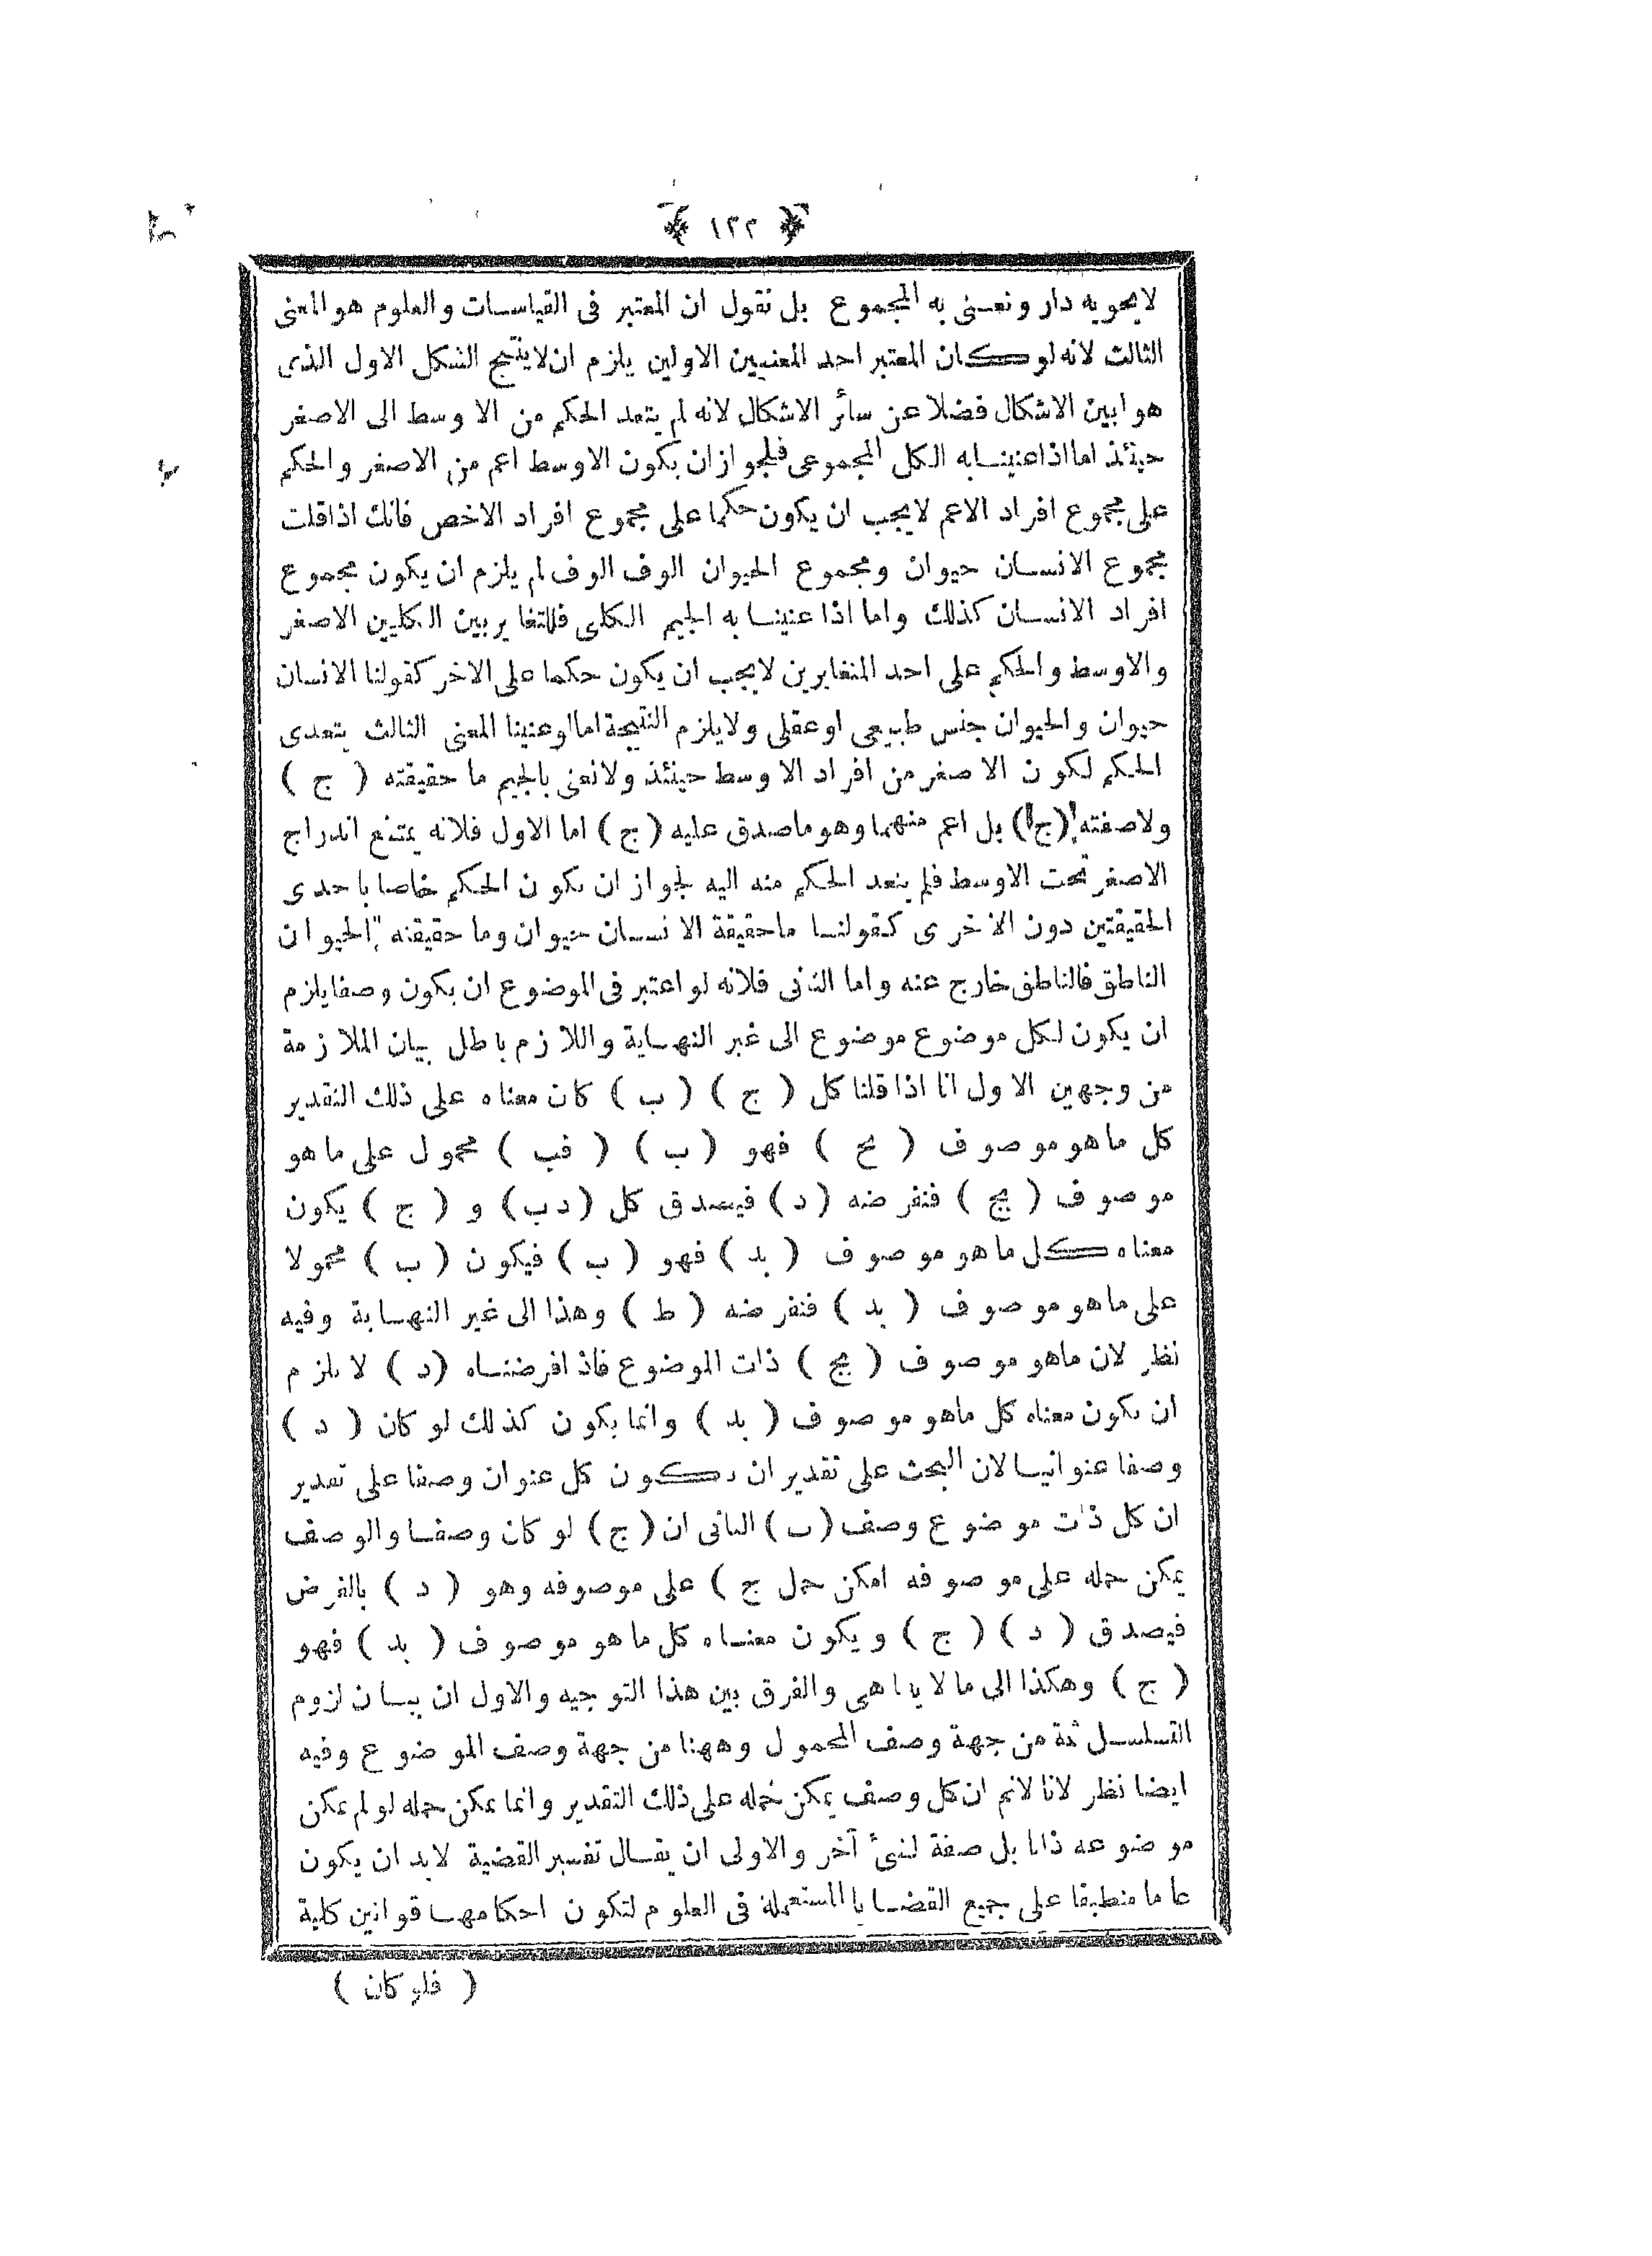 ﴿ ١٢٢ ﴾
لا يحويه دار ونعنى به المجموع بل نقول ان المعتبر فى القياسات والعلوم هو المعنى
الثالث لانه لو كان المعتبر احد المعنيين الاولين يلزم ان لا ينتج الشكل الاول الذى
هو ابين الاشكال فضلا عن سائر الاشكال لانه لم يتعد الحكم من الاوسط الى الاصغر
حينئذ اما اذا عنينا به الكل المجموعى فلجواز ان يكون الاوسط اعم من الاصغر والحكم
على مجموع افراد الاعم لا يجب ان يكون حكما على مجموع افراد الاخص فانك اذا قلت
مجموع الانسان حيوان ومجموع الحيوان الوف الوف لم يلزم ان يكون مجموع
افراد الانسان كذلك واما اذا عنينا به الجيم الكلى فللتغاير بين الكليين الاصغر
والاوسط والحكم على احد المتغايرين لا يجب ان يكون حكما على الاخر كقولنا الانسان
حيوان والحيوان جنس طبيعى او عقلى ولا يلزم النتيجة اما لو عنينا المعنى الثالث يتعدى
الحكم لكون الاصغر من افراد الاوسط حينئذ ولا نعنى بالجيم ما حقيقته ( ج )
ولا صفته (ج) بل اعم منهما وهو ما صدق عليه (ج) اما الاول فلانه يمتنع اندراج
الاصغر تحت الاوسط فلم يتعد الحكم منه اليه لجواز ان يكون الحكم خاصا باحدى
الحقيقتين دون الاخرى كقولنا ما حقيقة الانسان حيوان وما حقيقته الحيوان
الناطق فالناطق خارج عنه واما الثانى فلانه لو اعتبر فى الموضوع ان يكون وصفا يلزم
ان يكون لكل موضوع موضوع الى غير النهاية واللازم باطل بيان الملازمة
من وجهين الاول انا اذا قلنا كل ( ج ) ( ب ) كان معناه على ذلك التقدير
كل ما هو موصوف ( بج ) فهو ( ب ) ( فب ) محمول على ما هو
موصوف ( بج ) فنفرضه ( د ) فيصدق كل ( دب ) و ( ج ) يكون
معناه كل ما هو موصوف ( بد ) فهو ( ب ) فيكون ( ب ) محمولا
على ما هو موصوف ( بد ) فنفرضه ( ط ) وهذا الى غير النهاية وفيه
نظر لان ما هو موصوف ( بج ) ذات الموضوع فاذا فرضناه ( د ) لا يلزم
ان يكون معناه كل ما هو موصوف ( بد ) وانما يكون كذلك لو كان ( د )
وصفا عنوانيا لان البحث على تقدير ان يكون كل عنوان وصفا على تقدير
ان كل ذات موضوع وصف ( ب ) الثانى ان ( ج ) لو كان وصفا والوصف
يمكن حمله على موصوفه امكن حمل ج ) على موصوفه وهو ( د ) بالفرض
فيصدق ( د ) ( ج ) ويكون معناه كل ما هو موصوف ( بد ) فهو
( ج ) وهكذا الى ما لا يتناهى والفرق بين هذا التوجيه والاول ان بيان لزوم
التسلسل ثمة من جهة وصف المحمول وههنا من جهة وصف الموضوع وفيه
ايضا نظر لانا لانم ان كل وصف يمكن حمله على ذلك التقدير وانما يمكن حمله لو لم يمكن
موضوعه ذاتا بل صفة لشئ آخر والاولى ان يقال تفسير القضية لابد ان يكون
عاما منطبقا على جميع القضايا المستعملة فى العلوم لتكون احكامها قوانين كلية
( فلو كان )